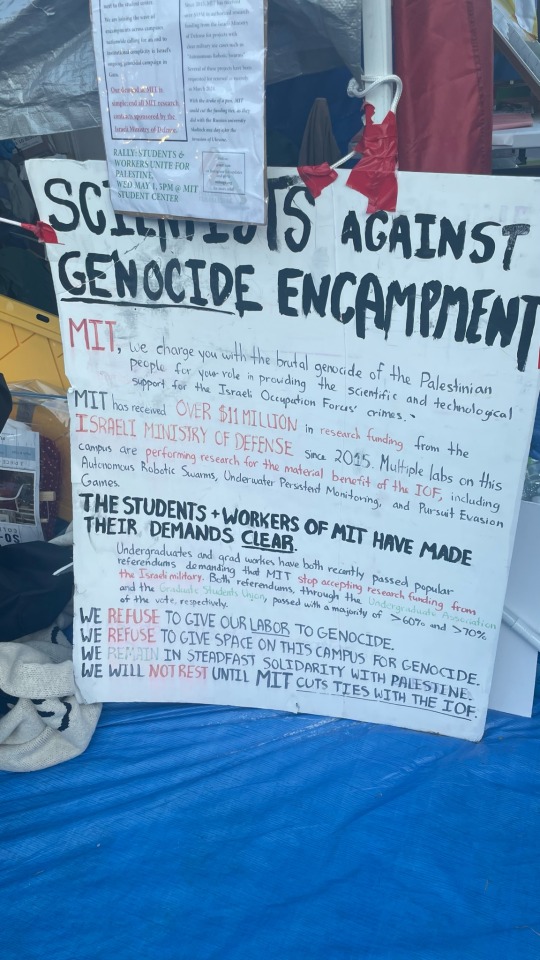 sent to the student center.
We are joining the wave of
encampments across campuses
nationwide calling for an end to
institutional complicity in Israel's
ongoing genocidal campaign in
Gaza.
Our demand is MIT is
simple: end all MIT research
contracts sponsored by the
Israeli Ministry of Defense.
funding from the Israeli Ministry
of Defense for projects with
clear military use cases such as
Several of these projects have been
RALLY: STUDENTS &
WORKERS UNITE FOR
PALESTINE,
WED MAY 1, 5PM @ MIT
STUDENT CENTER
SCIENTISTS AGAINST
GENOCIDE ENCAMPMENT
MIT, we charge you with the brutal genocide of the Palestinian
people for your role in providing the scientific and technological
support for the Israeli Occupation Forces' crimes.
MIT has received OVER $11 MILLION in research funding from the
ISRAELI MINISTRY OF DEFENSE since 2015. Multiple labs on this
campus are performing research for the material benefit of the IOF, including
Autonomous Robotic Swarms, Underwater Persistent Monitoring, and Pursuit Evasion
Games.
THE STUDENTS + WORKERS OF MIT HAVE MADE
THEIR DEMANDS CLEAR.
Undergraduates and grad workers have both recently passed popular
referendums demanding that MIT stop accepting research funding from
the Israeli military. Both referendums, through the Undergraduate Association
and the Graduate Students Union, passed with a majority of >60% and >70%
of the vote, respectively.
WE REFUSE TO GIVE OUR LABOR TO GENOCIDE.
WE REFUSE TO GIVE SPACE ON THIS CAMPUS FOR GENOCIDE.
WE REMAIN IN STEADFAST SOLIDARITY WITH PALESTINE.
WE WILL NOT REST UNTIL MIT CUTS TIES WITH THE IOF.